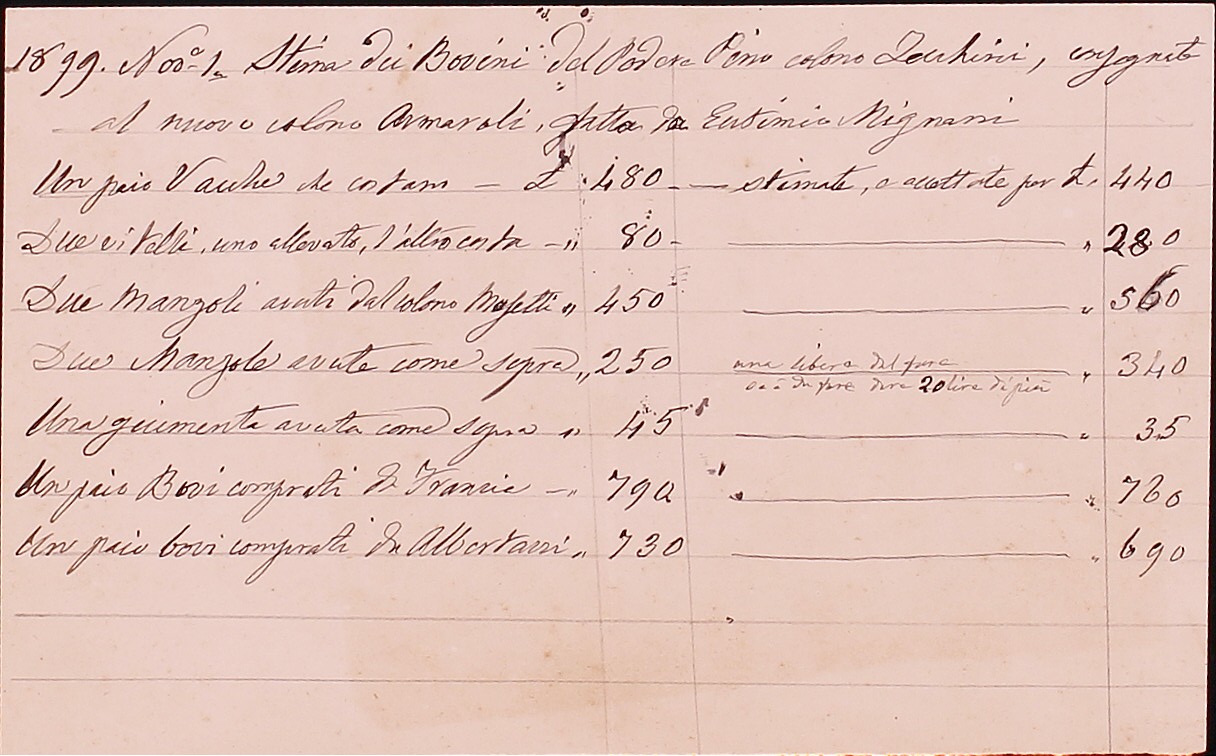 1899. Nov.e 1. Stima dei Bovini del Podere Pino colono Zecchini, consegnato
al nuovo colono Armaroli, fatta da Eutimio Mignani
Un paio Vacche che costano — £ 480 — stimate, e accettate per £. 440
Due vitelli, uno allevato, l'altro costa — " 80 — " 280
Due Manzoli avuti dal colono " 450 " 560
Due Manzole avute come sopra " 250 " 340
una libera dal fare
20 lire di più
Una giumenta avuta come sopra " 45 " 35
Un paio Bovi comprati da Francia — " 790 " 760
Un paio bovi comprati da Albertazzi " 730 " 690